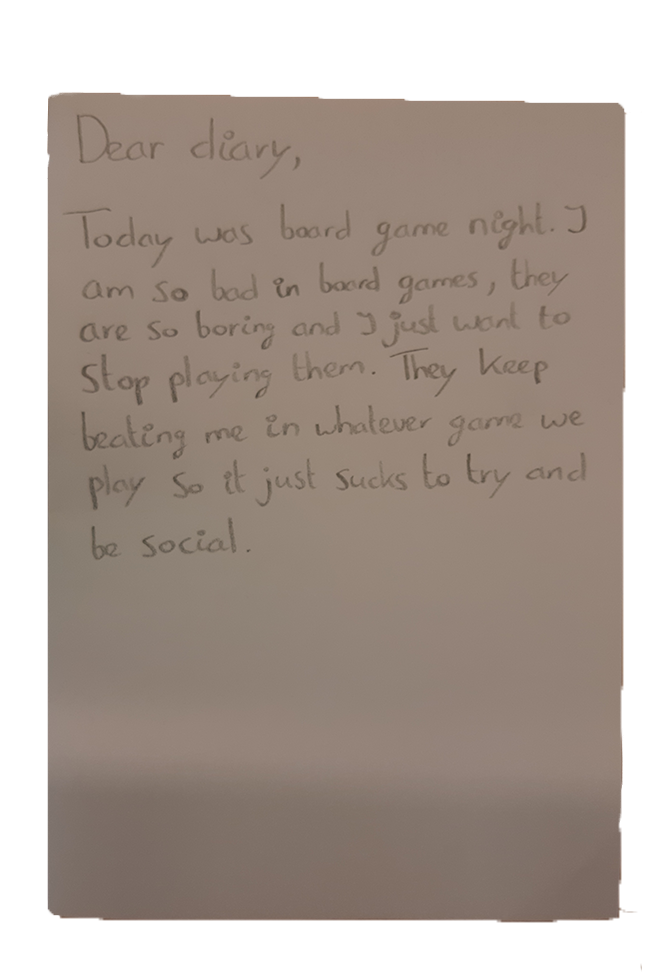 Dear diary,
Today was board game night. I
am so bad in board games, they
are so boring and I just want to
stop playing them. They keep
beating me in whatever game we
play so it just sucks to try and
be social.